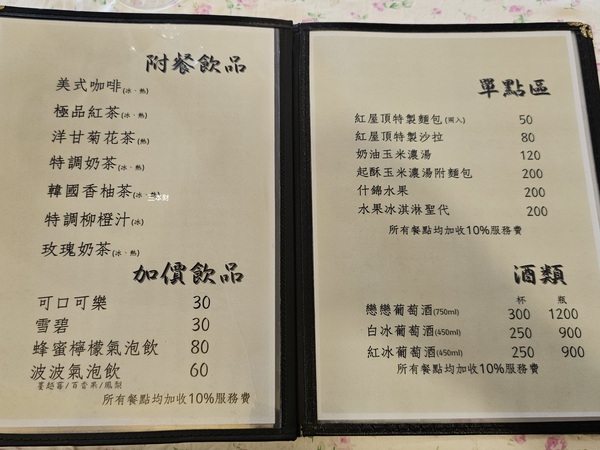 附餐飲品
美式咖啡(冰、熱)
極品紅茶(冰、熱)
洋甘菊花茶(熱)
特調奶茶(冰、熱)
韓國香柚茶(冰、熱)
特調柳橙汁(冰)
玫瑰奶茶(冰、熱)
加價飲品
可口可樂 30
雪碧 30
蜂蜜檸檬氣泡飲 80
波波氣泡飲 60
蔓越莓/百香果/鳳梨
所有餐點均加收10%服務費
單點區
紅屋頂特製麵包(兩入) 50
紅屋頂特製沙拉 80
奶油玉米濃湯 120
起酥玉米濃湯附麵包 200
什錦水果 200
水果冰淇淋聖代 200
所有餐點均加收10%服務費
酒類
杯 瓶
戀戀葡萄酒(750ml) 300 1200
白冰葡萄酒(450ml) 250 900
紅冰葡萄酒(450ml) 250 900
所有餐點均加收10%服務費